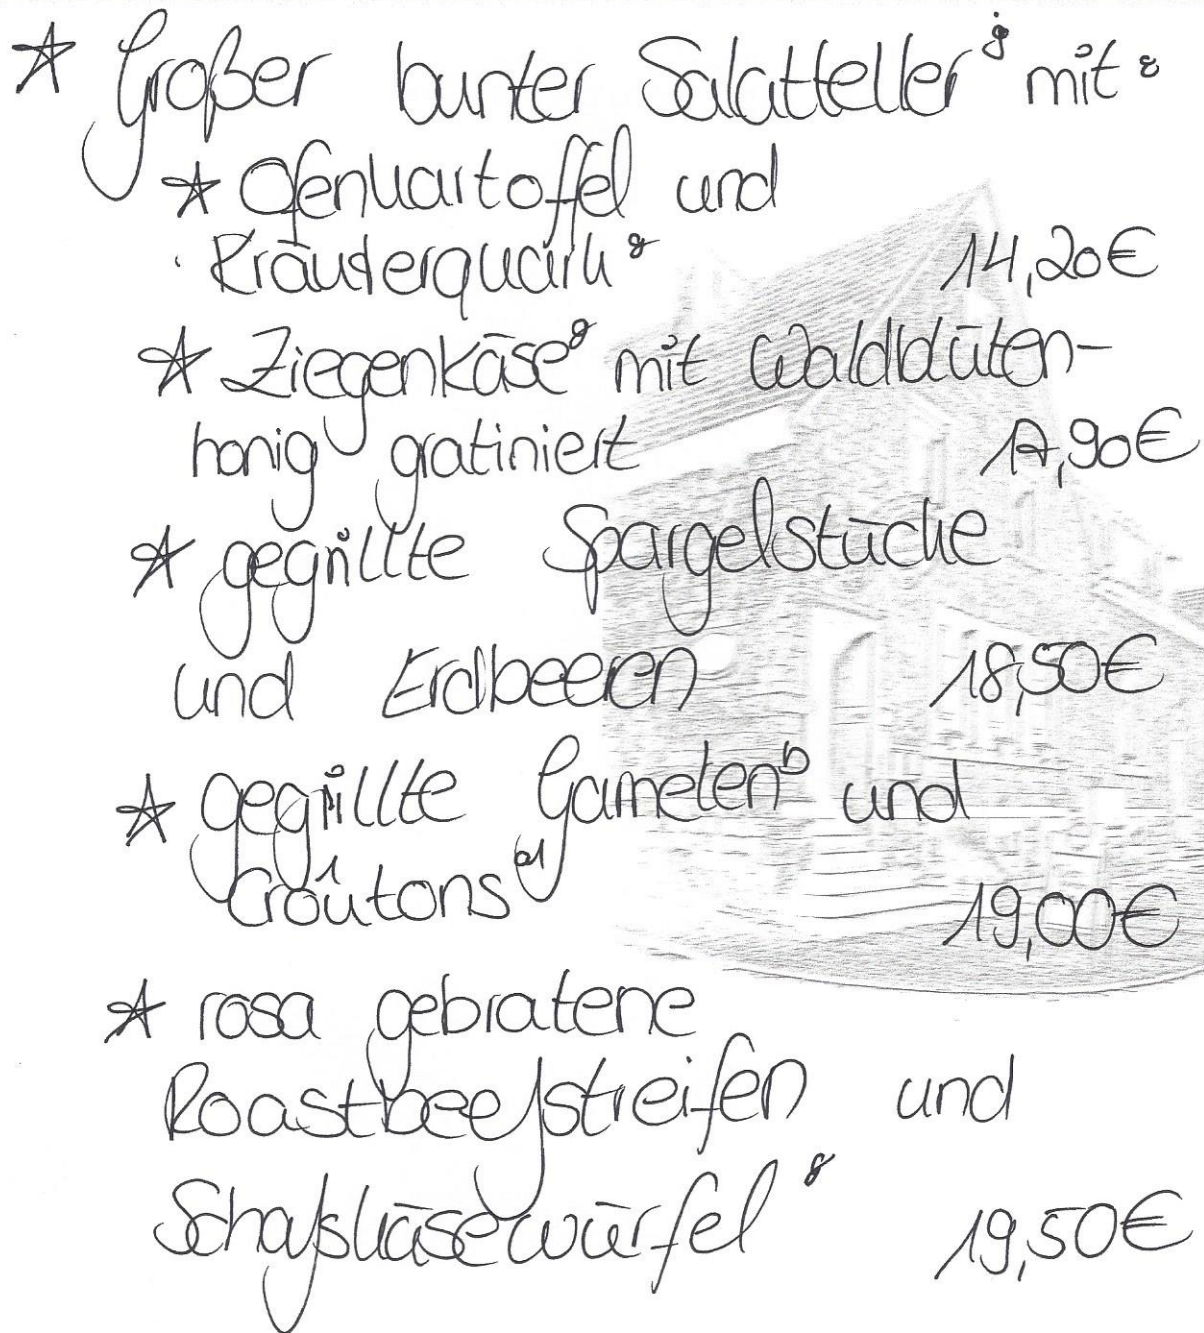 ★ Großer bunter Salatteller ʲ mit :
★ Ofenkartoffel und
Kräuterquark ᵍ 14,20€
★ Ziegenkäse ᵍ mit Waldblüten-
honig gratiniert 17,90€
★ gegrillte Spargelstücke
und Erdbeeren 18,50€
★ gegrillte Garnelen ᵇ und
Croûtons ᵃ¹ 19,00€
★ rosa gebratene
Roastbeefstreifen und
Schafskäsewürfel ᵍ 19,50€